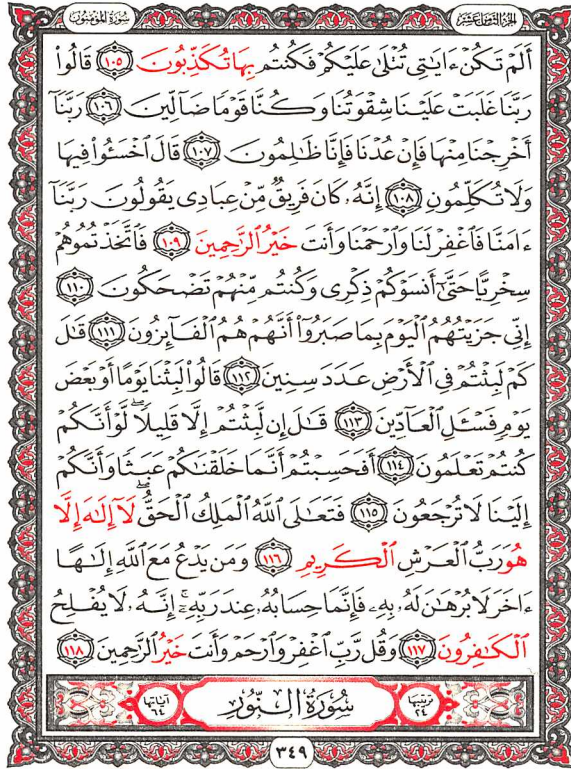 الجزء الثامن عشر
سورة المؤمنون
أَلَمْ تَكُنْ ءَايَٰتِى تُتْلَىٰ عَلَيْكُمْ فَكُنتُم بِهَا تُكَذِّبُونَ ١٠٥ قَالُوا۟
رَبَّنَا غَلَبَتْ عَلَيْنَا شِقْوَتُنَا وَكُنَّا قَوْمًا ضَآلِّينَ ١٠٦ رَبَّنَآ
أَخْرِجْنَا مِنْهَا فَإِنْ عُدْنَا فَإِنَّا ظَٰلِمُونَ ١٠٧ قَالَ ٱخْسَـُٔوا۟ فِيهَا
وَلَا تُكَلِّمُونِ ١٠٨ إِنَّهُۥ كَانَ فَرِيقٌ مِّنْ عِبَادِى يَقُولُونَ رَبَّنَآ
ءَامَنَّا فَٱغْفِرْ لَنَا وَٱرْحَمْنَا وَأَنتَ خَيْرُ ٱلرَّٰحِمِينَ ١٠٩ فَٱتَّخَذْتُمُوهُمْ
سِخْرِيًّا حَتَّىٰٓ أَنسَوْكُمْ ذِكْرِى وَكُنتُم مِّنْهُمْ تَضْحَكُونَ ١١٠
إِنِّى جَزَيْتُهُمُ ٱلْيَوْمَ بِمَا صَبَرُوٓا۟ أَنَّهُمْ هُمُ ٱلْفَآئِزُونَ ١١١ قَٰلَ
كَمْ لَبِثْتُمْ فِى ٱلْأَرْضِ عَدَدَ سِنِينَ ١١٢ قَالُوا۟ لَبِثْنَا يَوْمًا أَوْ بَعْضَ
يَوْمٍ فَسْـَٔلِ ٱلْعَآدِّينَ ١١٣ قَٰلَ إِن لَّبِثْتُمْ إِلَّا قَلِيلًا ۖ لَّوْ أَنَّكُمْ
كُنتُمْ تَعْلَمُونَ ١١٤ أَفَحَسِبْتُمْ أَنَّمَا خَلَقْنَٰكُمْ عَبَثًا وَأَنَّكُمْ
إِلَيْنَا لَا تُرْجَعُونَ ١١٥ فَتَعَٰلَى ٱللَّهُ ٱلْمَلِكُ ٱلْحَقُّ ۖ لَآ إِلَٰهَ إِلَّا
هُوَ رَبُّ ٱلْعَرْشِ ٱلْكَرِيمِ ١١٦ وَمَن يَدْعُ مَعَ ٱللَّهِ إِلَٰهًا
ءَاخَرَ لَا بُرْهَٰنَ لَهُۥ بِهِۦ فَإِنَّمَا حِسَابُهُۥ عِندَ رَبِّهِۦٓ ۚ إِنَّهُۥ لَا يُفْلِحُ
ٱلْكَٰفِرُونَ ١١٧ وَقُل رَّبِّ ٱغْفِرْ وَٱرْحَمْ وَأَنتَ خَيْرُ ٱلرَّٰحِمِينَ ١١٨
ترتيبها ٢٤
سورة النور
آياتها ٦٤
٣٤٩